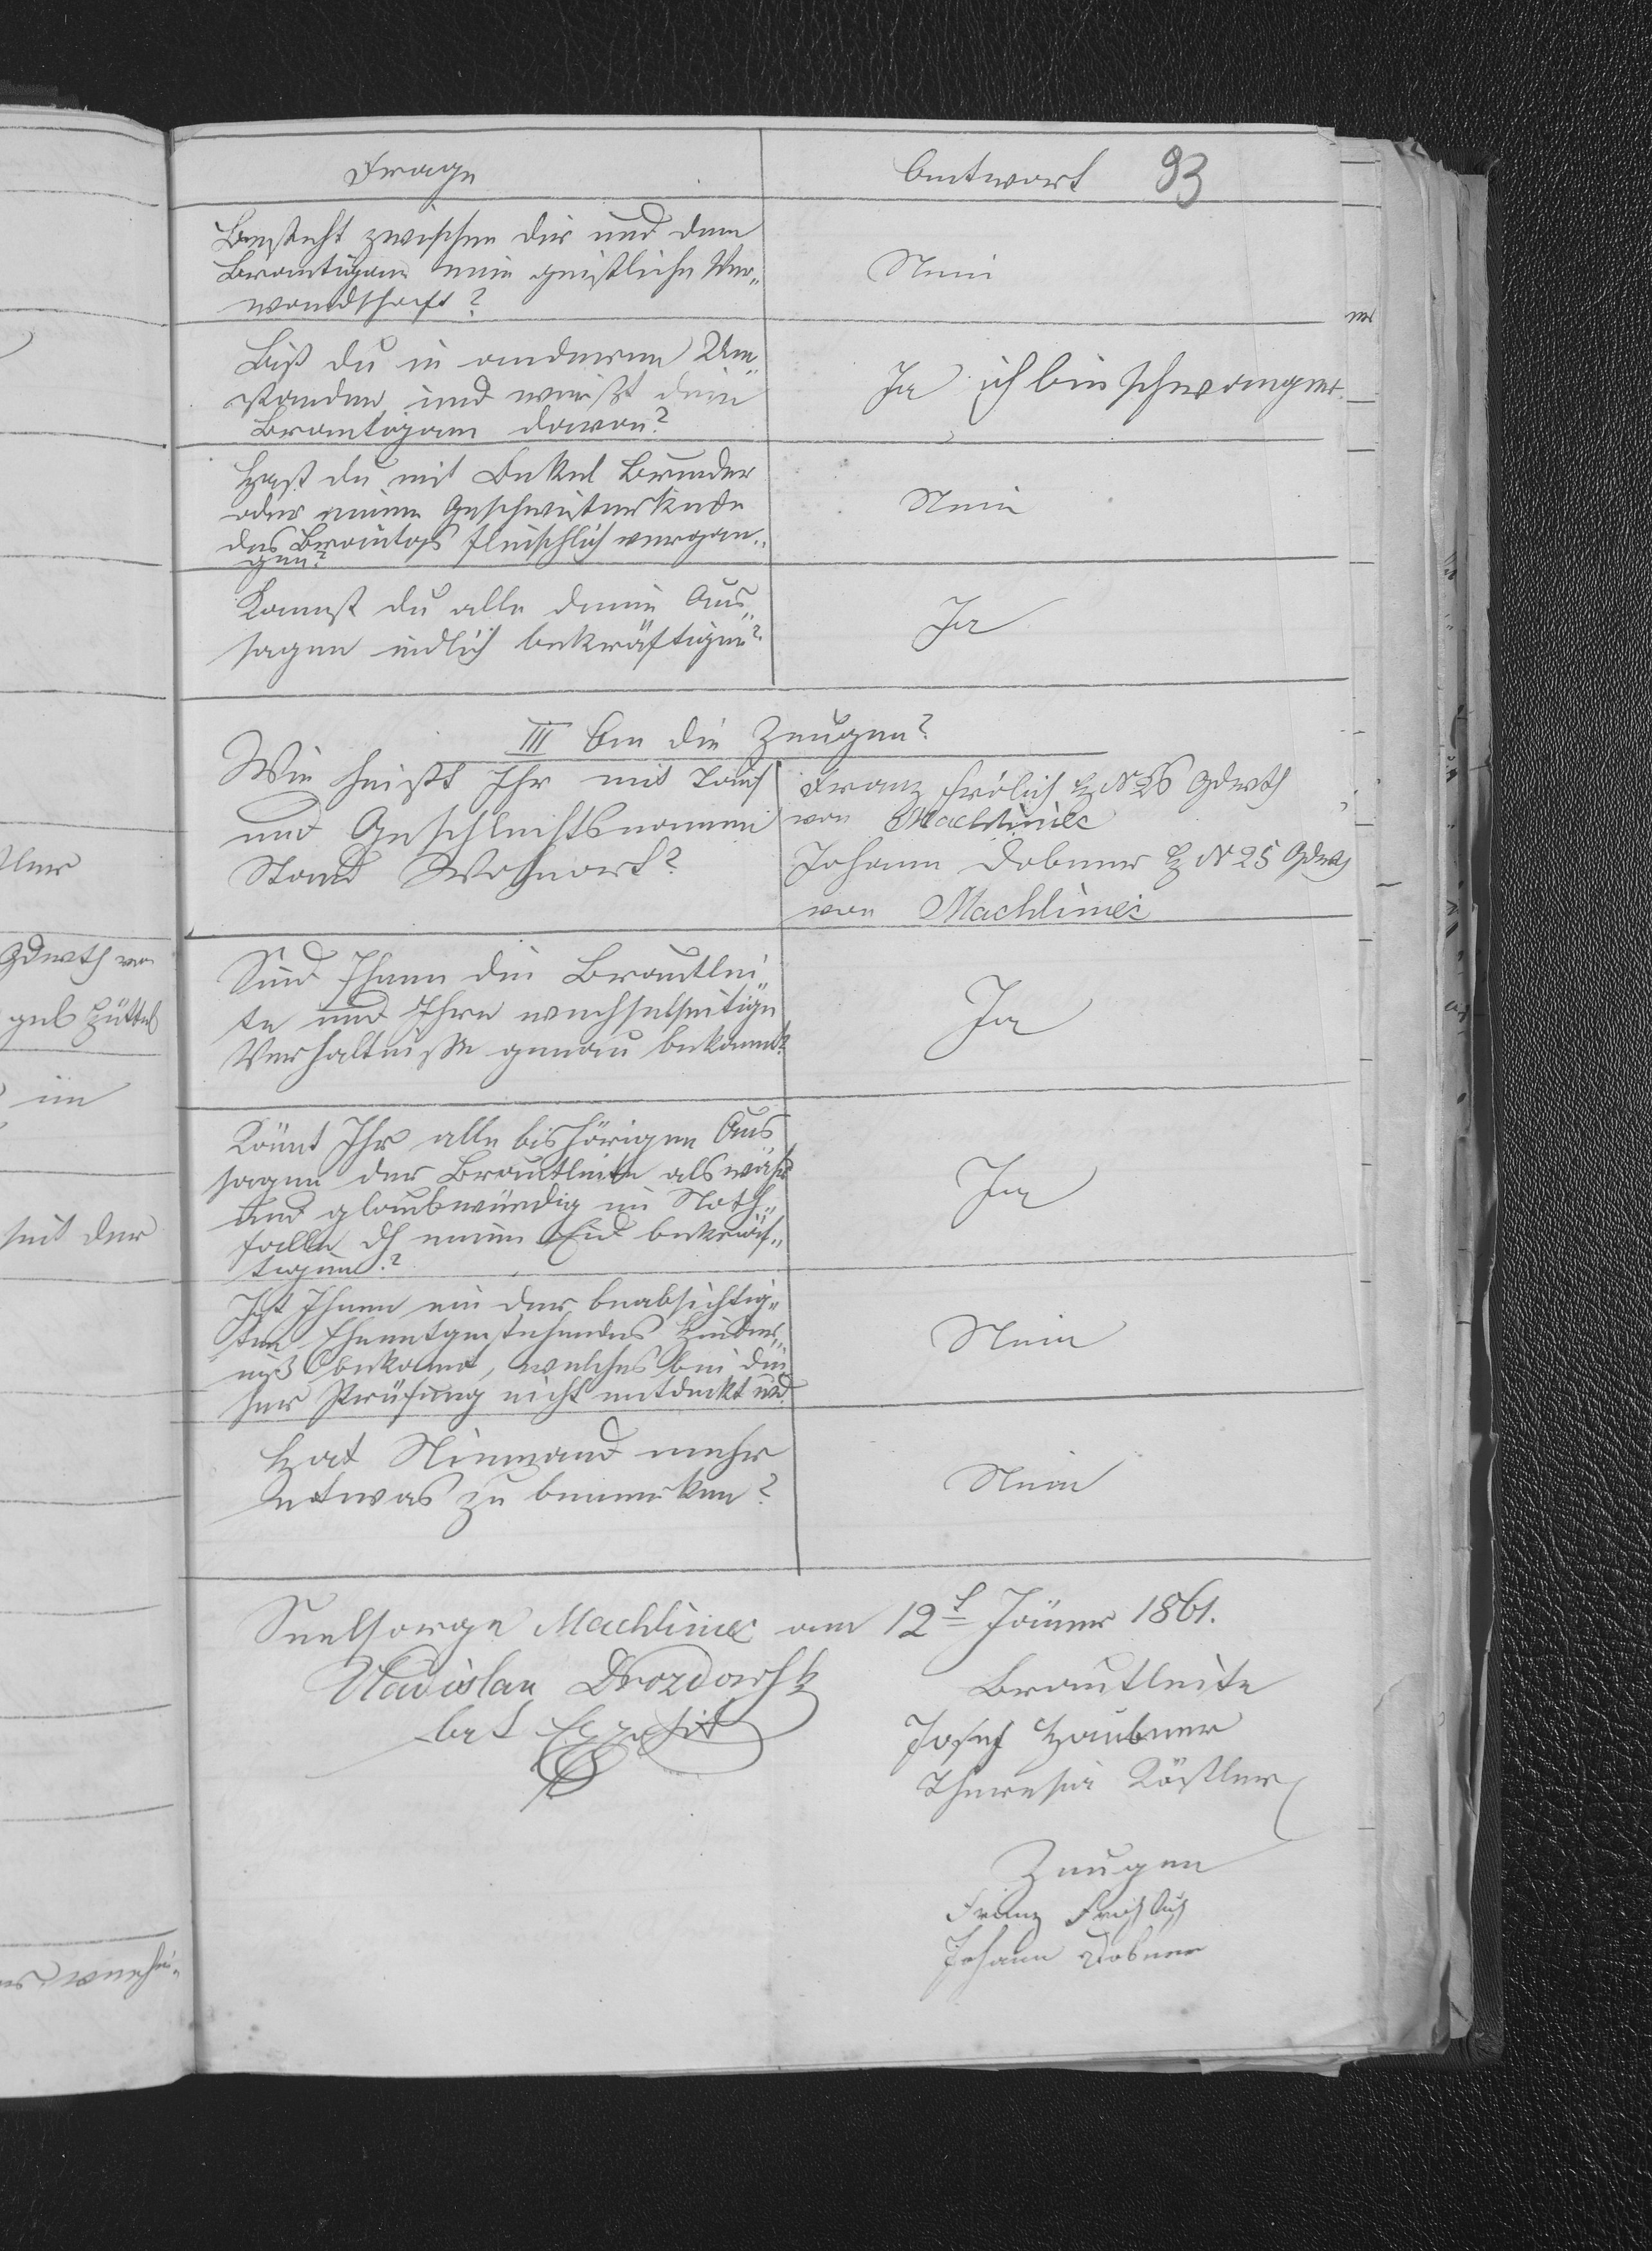 Frage
Antwort 93
Besteht zwischen dir und dem
Brautigam eine geistliche Ver„
wandschaft?
Nein
Bist du in anderen Um„
standen und weißt dein
Brautigam davon?
Ja ich bin schwanger.
Hast du mit Onkel Bruder
oder einem Geschwisterkinde
des Brautigs fleischlich vergan„
gen?
Nein
Kannst du alle deine Aus„
sagen eidlich bekräftigen?
Ja
III An die Zeugen?
Wie heißt Ihr mit Tauf
und Geschlechtsnamen
Stand Wohnort?
Franz Frölich H N 26 Gdrth
von Machtinec
Johann Dobner H N 25 Gdrth
von Machtinec
Sind Ihnen die Brautleu
te und Ihre wechselseitige
Verhaltniße genau bekannt?
Ja
Könnt Ihr alle bishörigen Aus
sagen der Brautleute als wahr
und glaubwürdig im Noth„
falle dh einen Eid bekräf„
tigen?
Ja
Ist Ihnen ein der beabsichtig„
ten Eheentgestehendes Hinder„
niß bekannt, welches bei die
ser Prüfung nicht entdeckt wd.
Nein
Hat Niemand mehr
etwas zu bemerken?
Nein
Seelsorge Machtinec am 12t Jänner 1861.
Vladislau Drozdowsk
Exposit
Brautleute
Josef Haubner
Theresia Köstler
Zeugen
Franz Fröhlich
Johann Dobner
tler
Gdrth von
geb Hüttel
im
seit der